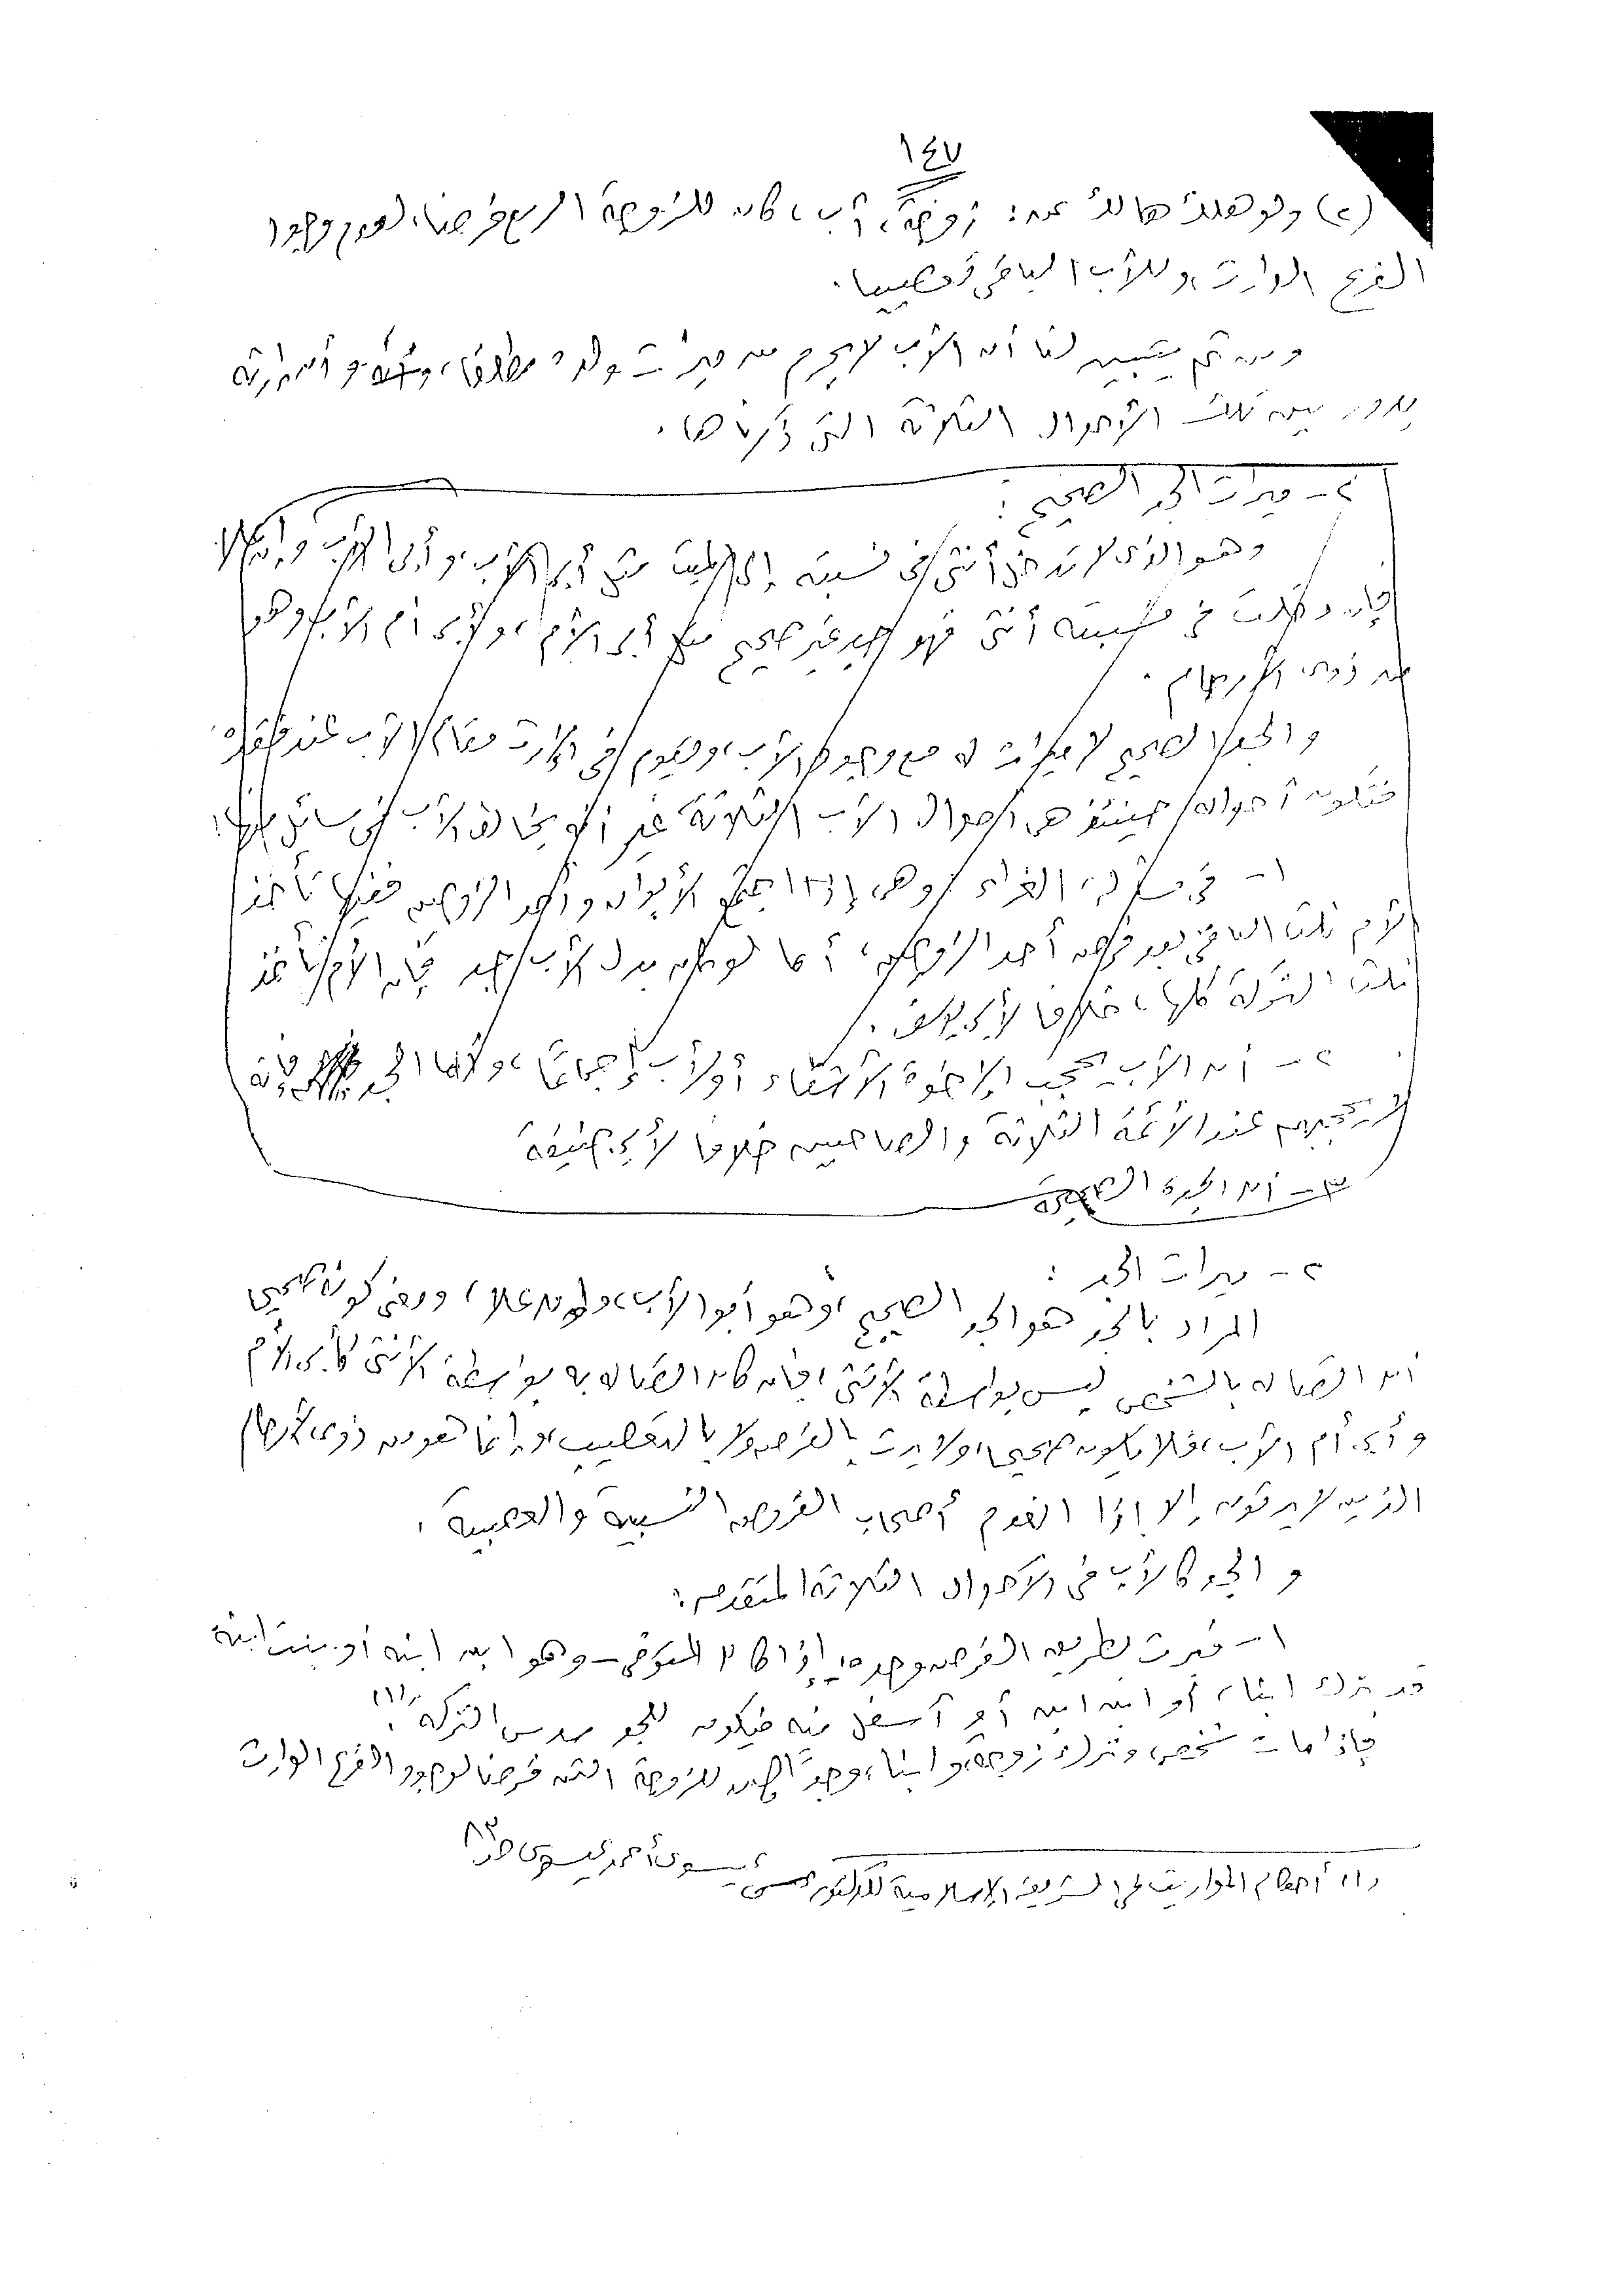 ١٤٧
(٢) ولو هلك هالك عن: زوجة، أب، كان للزوجة الربع فرضا، لعدم وجود
الفرع الوارث، وللأب الباقى تعصيبا.
ومن ثم يتبين لنا أن الأب لا يحرم من ميراث ولده مطلقا، وأن ارثه
يدور بين تلك الأحوال الثلاثة التى ذكرناها.
٢ - ميراث الجد الصحيح :
وهو الذى لا تدخل أنثى فى نسبته إلى الميت مثل أبى الأب وأبى أبى الأب وإن علا
فإن دخلت فى نسبته أنثى فهو الجد غير صحيح مثل أبى الأم، ولأبى أم الأب وهو
من ذوى الأرحام.
والجد الصحيح لا ميراث له مع وجود الأب، ويقوم فى الإرث مقام الأب عند فقده
فتكون أحواله حينئذ هى أحوال الأب الثلاثة غير أنه يخالف الأب فى مسائل
١ - فى مسألة الغراء وهى إذا اجتمع الأبوان وأحد الزوجين ففيها تأخذ
الأم ثلث الباقى بعد فرض أحد الزوجين، أما لو كان بدل الأب الجد فإن الأم تأخذ
ثلث التركة كلها، خلافا لأبى يوسف.
٢ - أن الأب يحجب الإخوة الأشقاء أو لأب إجماعا، ولكن الجد
لا يحجبهم عند الأئمة الثلاثة والصاحبين خلافا لأبى حنيفة
٣ - أن الجدة الصحيحة
٢ - ميراث الجد :
المراد بالجد هو الجد الصحيح، وهو أبو الأب، وإن علا، ومعنى كونه صحيح
أن اتصاله بالشخص ليس بواسطة الأنثى، فإن كان اتصاله به بواسطة الأنثى كأبى الأم
وأبى أم الأب، فلا يكون صحيحا، ولا يرث بالفرض ولا بالتعصيب، وإنما هو من ذوى الأرحام
الذين لا يرثون إلا إذا انعدم أصحاب الفروض النسبية والعصبية.
والجد كالأب فى الأحوال الثلاثة المتقدمة:
١ - فيرث بطريق الفرض وحده، إذا كان المتوفى - وهو ابن ابنه أو بنت ابنه
قد ترك ابنا، أو ابن ابن أو أسفل منه فيكون للجد سدس التركة.(١)
فإذا مات شخص وترك زوجة، وابنا، وجدا كان للزوجة الثمن فرضا لوجود الفرع الوارث
(١) أحكام المواريث فى الشريعة الإسلامية للدكتور عيسوى أحمد عيسوى صـ٨٣